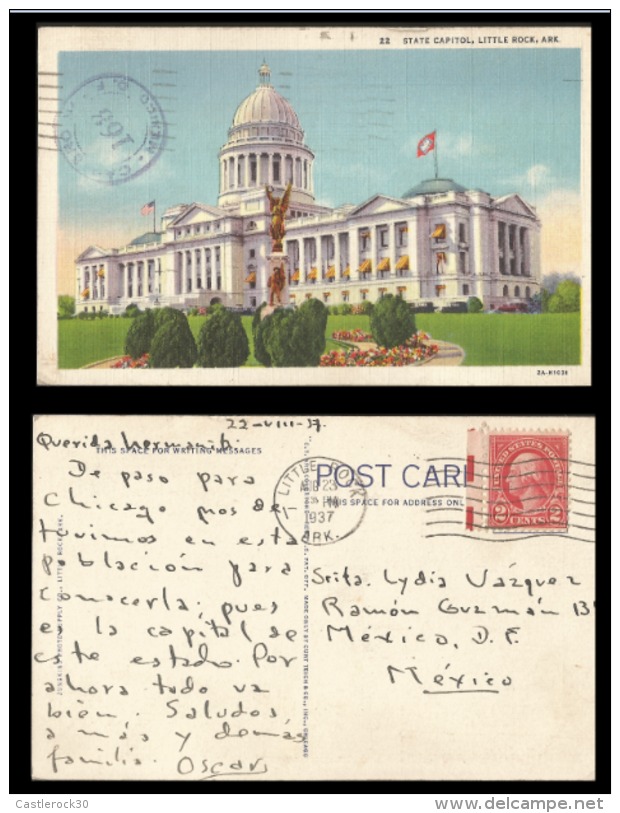 22 STATE CAPITOL, LITTLE ROCK, ARK.
168
2A-H1034
22-VIII-37.
Querida hermanita:
THIS SPACE FOR WRITING MESSAGES
De paso para
Chicago nos de
tuvimos en esta
población para
conocerla, pues
es la capital de
este estado. Por
ahora todo va
bien. Saludos,
a más y demás
familia. Oscar
POST CAR
THIS SPACE FOR ADDRESS ONL
LITTLE ROCK
AUG 23
PM
1937
ARK.
UNITED STATES POSTAGE
2 CENTS 2
Srita. Lydia Vázquez
Ramón Guzmán 13
México, D. F.
México
Castlerock30
www.delcampe.net